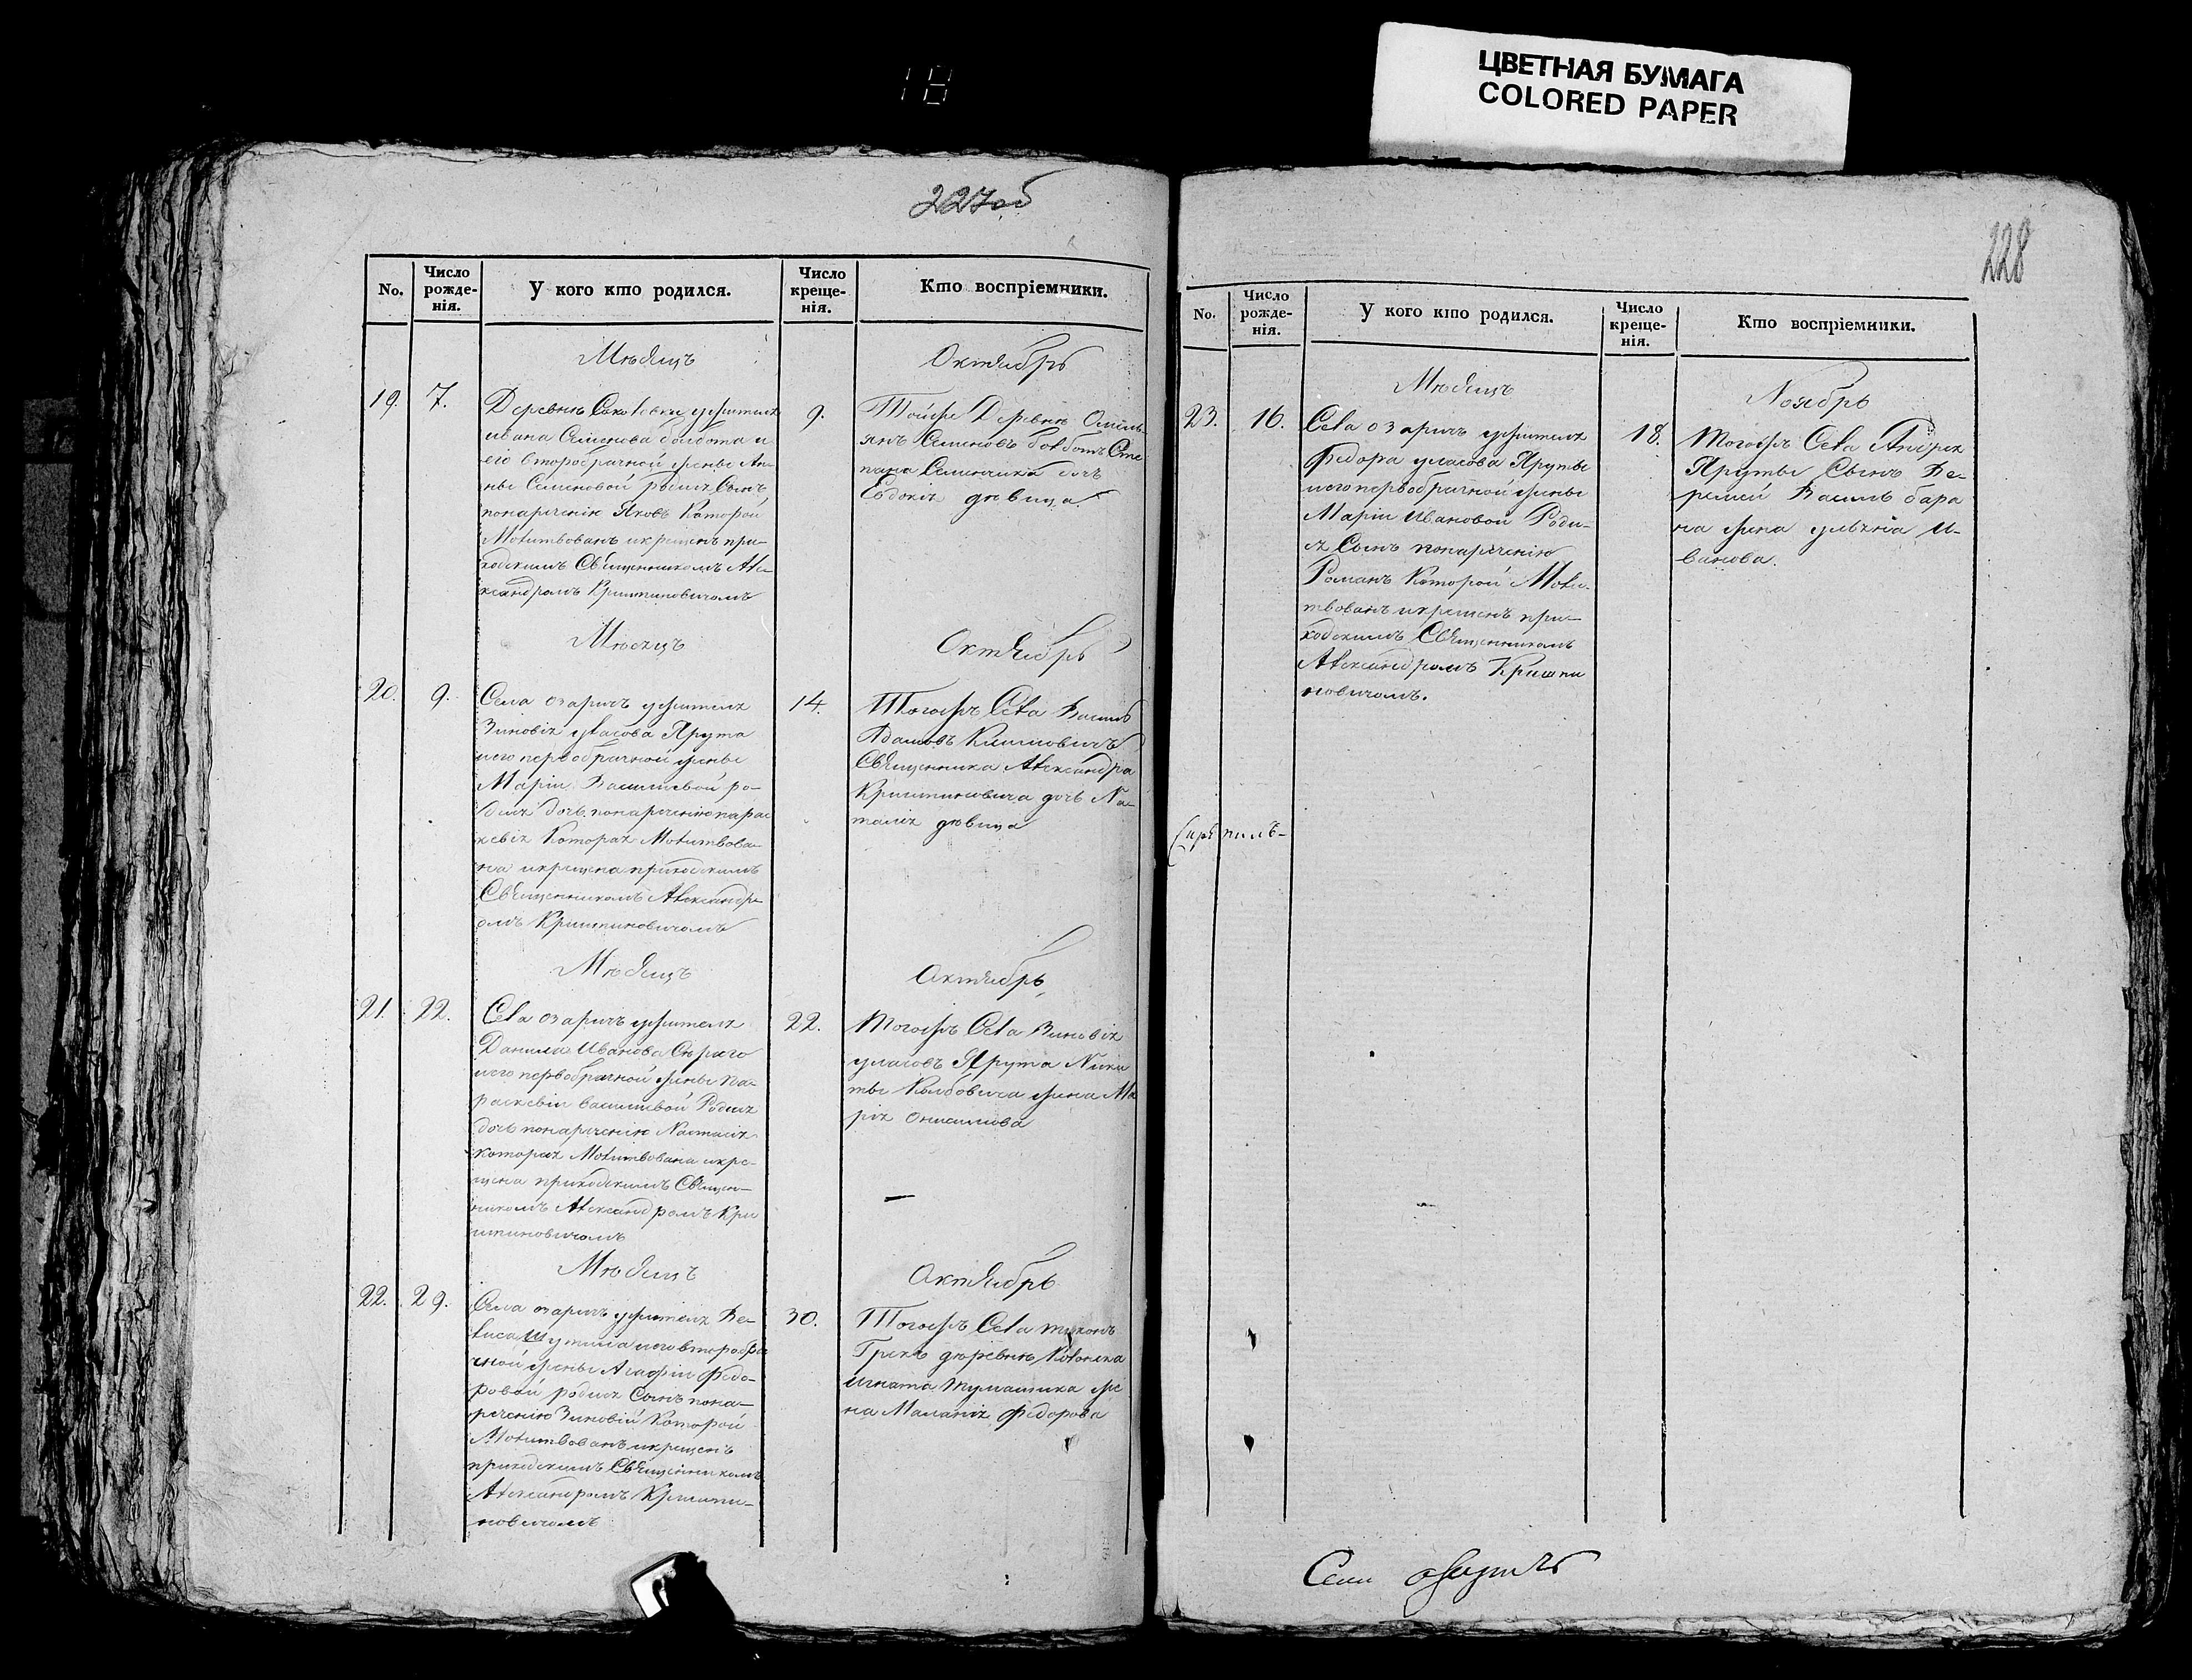 18
ЦВЕТНАЯ БУМАГА
COLORED PAPER
227об
No.
Число рожде-нія.
У кого кто родился.
Число креще-нія.
Кто воспріемники.
Мѣсяцъ
Октябрь
19.
7.
Деревнѣ жителя
ивана Семенова болбота и
его второбрачной жены Ан-
ны Семеновой родился Сынъ
понареченію Яковъ Которой
Молитвованъ икрещенъ при-
ходскимъ Священникомъ Але-
ксандромъ Криштиновичомъ
9.
Тойже Деревнѣ Омель-
янъ Семеновъ болботъ Сте
пана дочь
Евдокія дѣвица
Мѣсяцъ
Октябрь
20.
9.
Села озаричъ жителя
Зиновія уласова Ярута
иего первобрачной жены
Маріи Василіевой ро-
дилася дочь понареченію парас
кевія Которая Молитвова-
на икрещена приходскимъ
Священникомъ Александр
омъ Криштиновичомъ
14.
Тогожъ Села Василь
Климовичъ
Священника Александра
Криштиновича дочь На-
талія дѣвица
Мѣсяцъ
Октябрь
21.
22.
Села озаричъ жителя
Данила Иванова Сѣрого
иего первобрачной жены Па-
раскевіи василіевой Родилася
дочь понареченію Настасія
которая Молитвована икре-
щена приходскимъ Священ-
никомъ Александромъ Кри
штиновичомъ
22.
Тогожъ Села Зиновій
уласовъ Ярута Ники
ты жена Ма
рія Онисимова
Мѣсяцъ
Октябрь
22.
29.
Села озаричъ жителя Бе-
лиса иего второбра
чной жены Агафіи Федо-
ровой родился Сынъ пона-
реченію Зиновій Которой
Молитвованъ икрещенъ
приходскимъ Священникомъ
Александромъ Кришти-
новичомъ
30.
Тогожъ Села тихонъ
Грекъ деревнѣ
Игната жe
на Маланія Федорова
228
No.
Число рожде-нія.
У кого кто родился.
Число креще-нія.
Кто воспріемники.
Мѣсяцъ
Ноябрь
23.
16.
Села озаричъ жителя
Федора уласова Яруты
иего первобрачной жены
Маріи Ивановой Роди-
ся Сынъ понареченію
Романъ Которой Моли-
твованъ икрещенъ при-
ходскимъ Священникомъ
Александромъ Кришти
новичомъ.
18.
Тогожъ Села Андрея
Яруты Сынъ Ве-
ремей Василь бара
на жена улѣяна И-
ванова.
Скрѣпилъ-
Села озаричъ